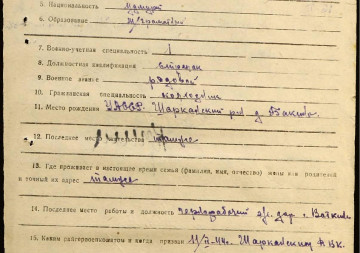 5. Национальность удмурт
6. Образование н/грамотный
7. Военно-учетная специальность 1
8. Должностная квалификация стрелок
9. Военное звание рядовой
10. Гражданская специальность
11. Место рождения УАССР. Шарканский р-н д.
12. Последнее место жительства
13. Где проживает в настоящее время семья (фамилия, имя, отчество) жены или родителей
и точный их адрес
14. Последнее место работы и должность чернорабочий жел. дор. г. Воткинск
15. Каким райгорвоенкоматом и когда призван Шарканским РВК.